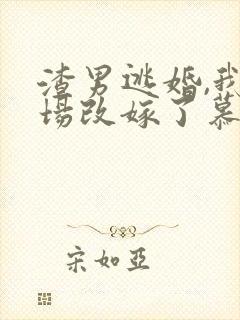 渣男逃婚,我
场改嫁了慕
宋如亞